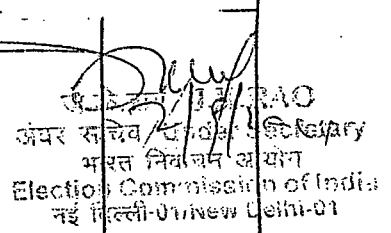 RAO
अवर सचिव / Under Secretary
भारत निर्वाचन आयोग
Election Commission of India
नई दिल्ली-01/New Delhi-01